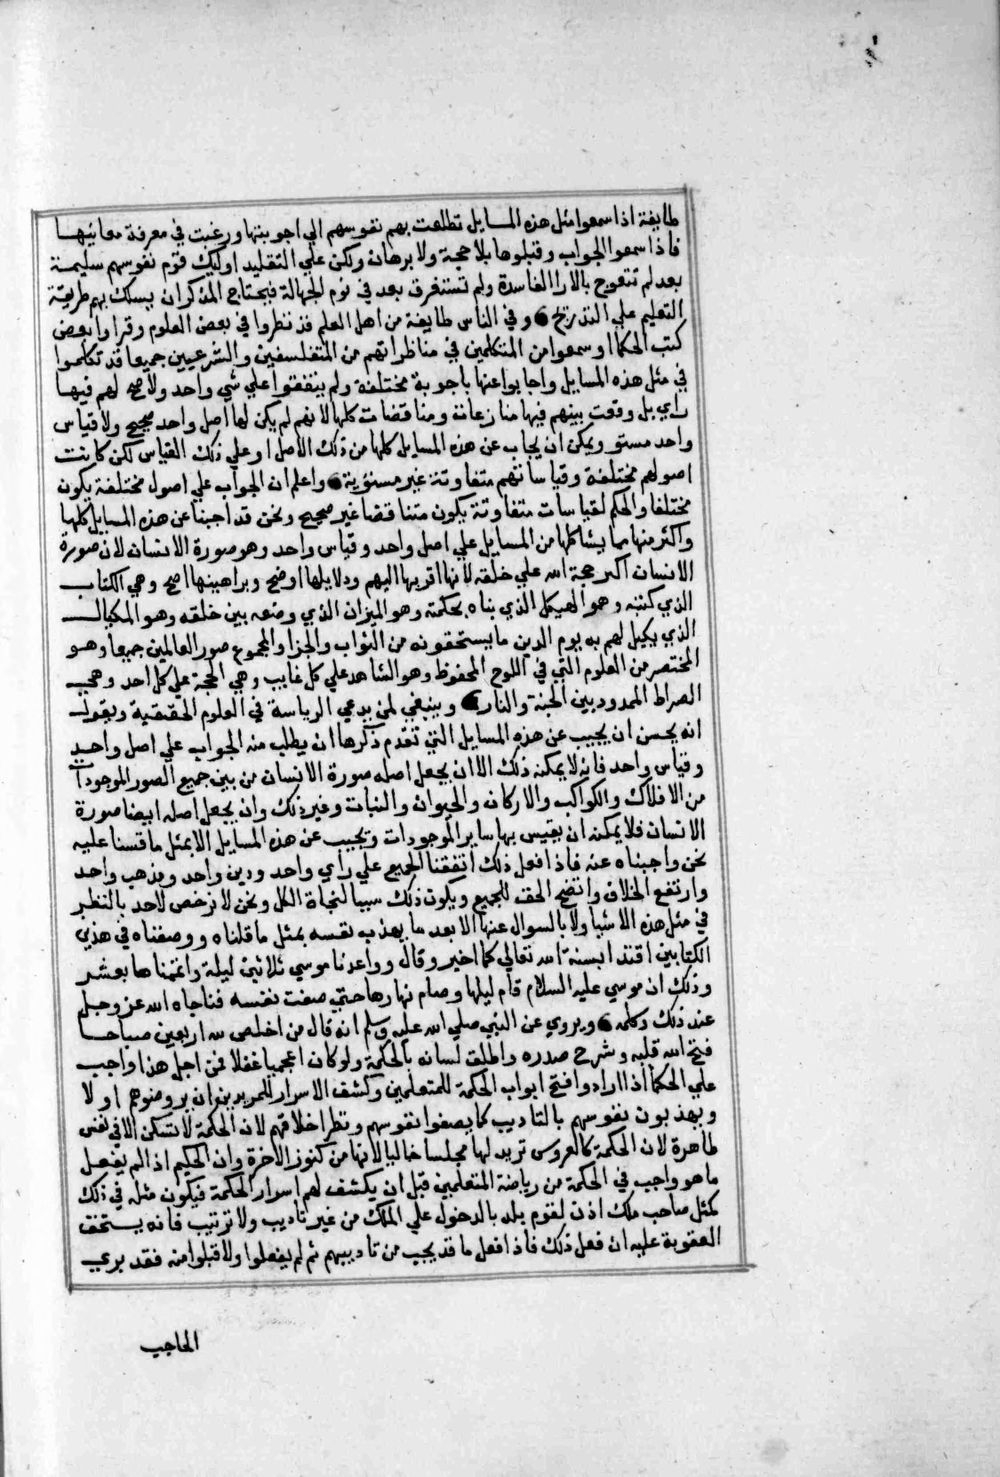 طايفة اذا سمعوا مثل هذه المسايل تطلعت بهم نفوسهم الي اجوبتها ورغبت في معرفة معانيها
فاذا سمعوا الجواب وقبلوها بلا حجة ولا برهان ولكن علي التقليد اوليك قوم نفوسهم سليمة
بعد لم تتعوج بالارا الفاسدة ولم تستغرق بعد في نوم الجهالة فيحتاج المذكر ان يسلك بهم طريقة
التعليم علي التدريج وفي الناس طايفة من اهل العلم قد نظروا في بعض العلوم وقراوا بعض
كتب الحكما وسمعوا من المتكلمين في مناظراتهم من المتفلسفين والشرعيين جميعا قد تكلموا
في مثل هذه المسايل واجابوا عنها باجوبة مختلفة ولم يتفقوا علي شي واحد ولا صح لهم فيها
راي بل وقعت بينهم فيها منازعات ومناقضات كلها لانهم لم يكن لها اصل واحد صحيح ولا قياس
واحد مستو ويمكن ان يجاب عن هذه المسايل كلها من ذلك الاصل او علي ذلك القياس لكن كانت
اصولهم مختلفة وقياساتهم متفاوتة غير مستوية واعلم ان الجواب علي اصول مختلفة يكون
مختلفا والحكم لقياسات متفاوتة يكون متناقضا غير صحيح ونحن قد اجبنا عن هذه المسايل كلها
واكثر منها مما يشاكلها من المسايل علي اصل واحد وقياس واحد وهو صورة الانسان لان صورة
الانسان اكبر حجة الله علي خلقه لانها اقربها اليهم ودلايلها اوضح وبراهينها اصح وهي الكتاب
الذي كتبه وهو الهيكل الذي بناه بحكمته وهو الميزان الذي وضعه بين خلقه وهو المكيال
الذي يكيل لهم به يوم الدين ما يستحقونه من الثواب والجزا والمجموع صور العالمين جميعا وهو
المختصر من العلوم التي في اللوح المحفوظ وهو الشاهد علي كل غايب وهي الحجة علي كل احد وهي
الصراط الممدود بين الجنة والنار وينبغي لمن يدعي الرياسة في العلوم الحقيقية ويقول
انه يحسن ان يجيب عن هذه المسايل التي تقدم ذكرها ان يطلب منه الجواب علي اصل واحد
وقياس واحد فانه لا يمكنه ذلك الا ان يجعل اصله صورة الانسان من بين جميع الصور الموجودات
من الافلاك والكواكب والاركان والحيوان والنبات وغير ذلك وان يجعل اصله ايضا صورة
الانسان فلا يمكنه ان يقيس بها ساير الموجودات ويجيب عن هذه المسايل الا بمثل ما قسنا عليه
نحن واجبناه عنه فاذا فعل ذلك اتفقنا الجميع علي راي واحد ودين واحد ومذهب واحد
وارتفع الخلاف واتضح الحق للجميع ويكون ذلك سببا لنجاة الكل ونحن لا نرخص لاحد بالنظر
في مثل هذه الاشيا ولا بالسوال عنها الا بعد ما يهذب نفسه بمثل ما قلناه ووصفناه في هذين
الكتابين اقتدا بسنة الله تعالي كما اخبر وقال وواعدنا موسي ثلاثين ليلة واتممناها بعشر
وذلك ان موسي عليه السلام قام ليلها وصام نهارها حتي صفت نفسه فناجاه الله عز وجل
عند ذلك وكلمه ويروي عن النبي صلي الله عليه وسلم انه قال من اخلص لله اربعين صباحا
فتح الله قلبه وشرح صدره واطلق لسانه بالحكمة ولو كان اعجميا غفلا فمن اجل هذا واجب
علي الحكما اذا ارادوا فتح ابواب الحكمة للمتعلمين وكشف الاسرار للمريدين ان يروضوهم اولا
ويهذبون نفوسهم بالتاديب كما يصفوا نفوسهم وتطهر اخلاقهم لان الحكمة لا تسكن الا في نفس
طاهرة لان الحكمة كالعروس تريد لها مجلسا خاليا لانها من كنوز الاخرة وان الحكيم اذا لم يفعل
ما هو واجب في الحكمة من رياضة المتعلمين قبل ان يكشف لهم اسرار الحكمة فيكون مثله في ذلك
كمثل صاحب ملك اذن لقوم بلد بالدخول علي الملك من غير تاديب ولا ترتيب فانه يستحق
العقوبة عليه ان فعل ذلك فاذا فعل ما قد يجب من تاديبهم ثم لم يفعلوا ولا قبلوا منه فقد بري
الحاجب